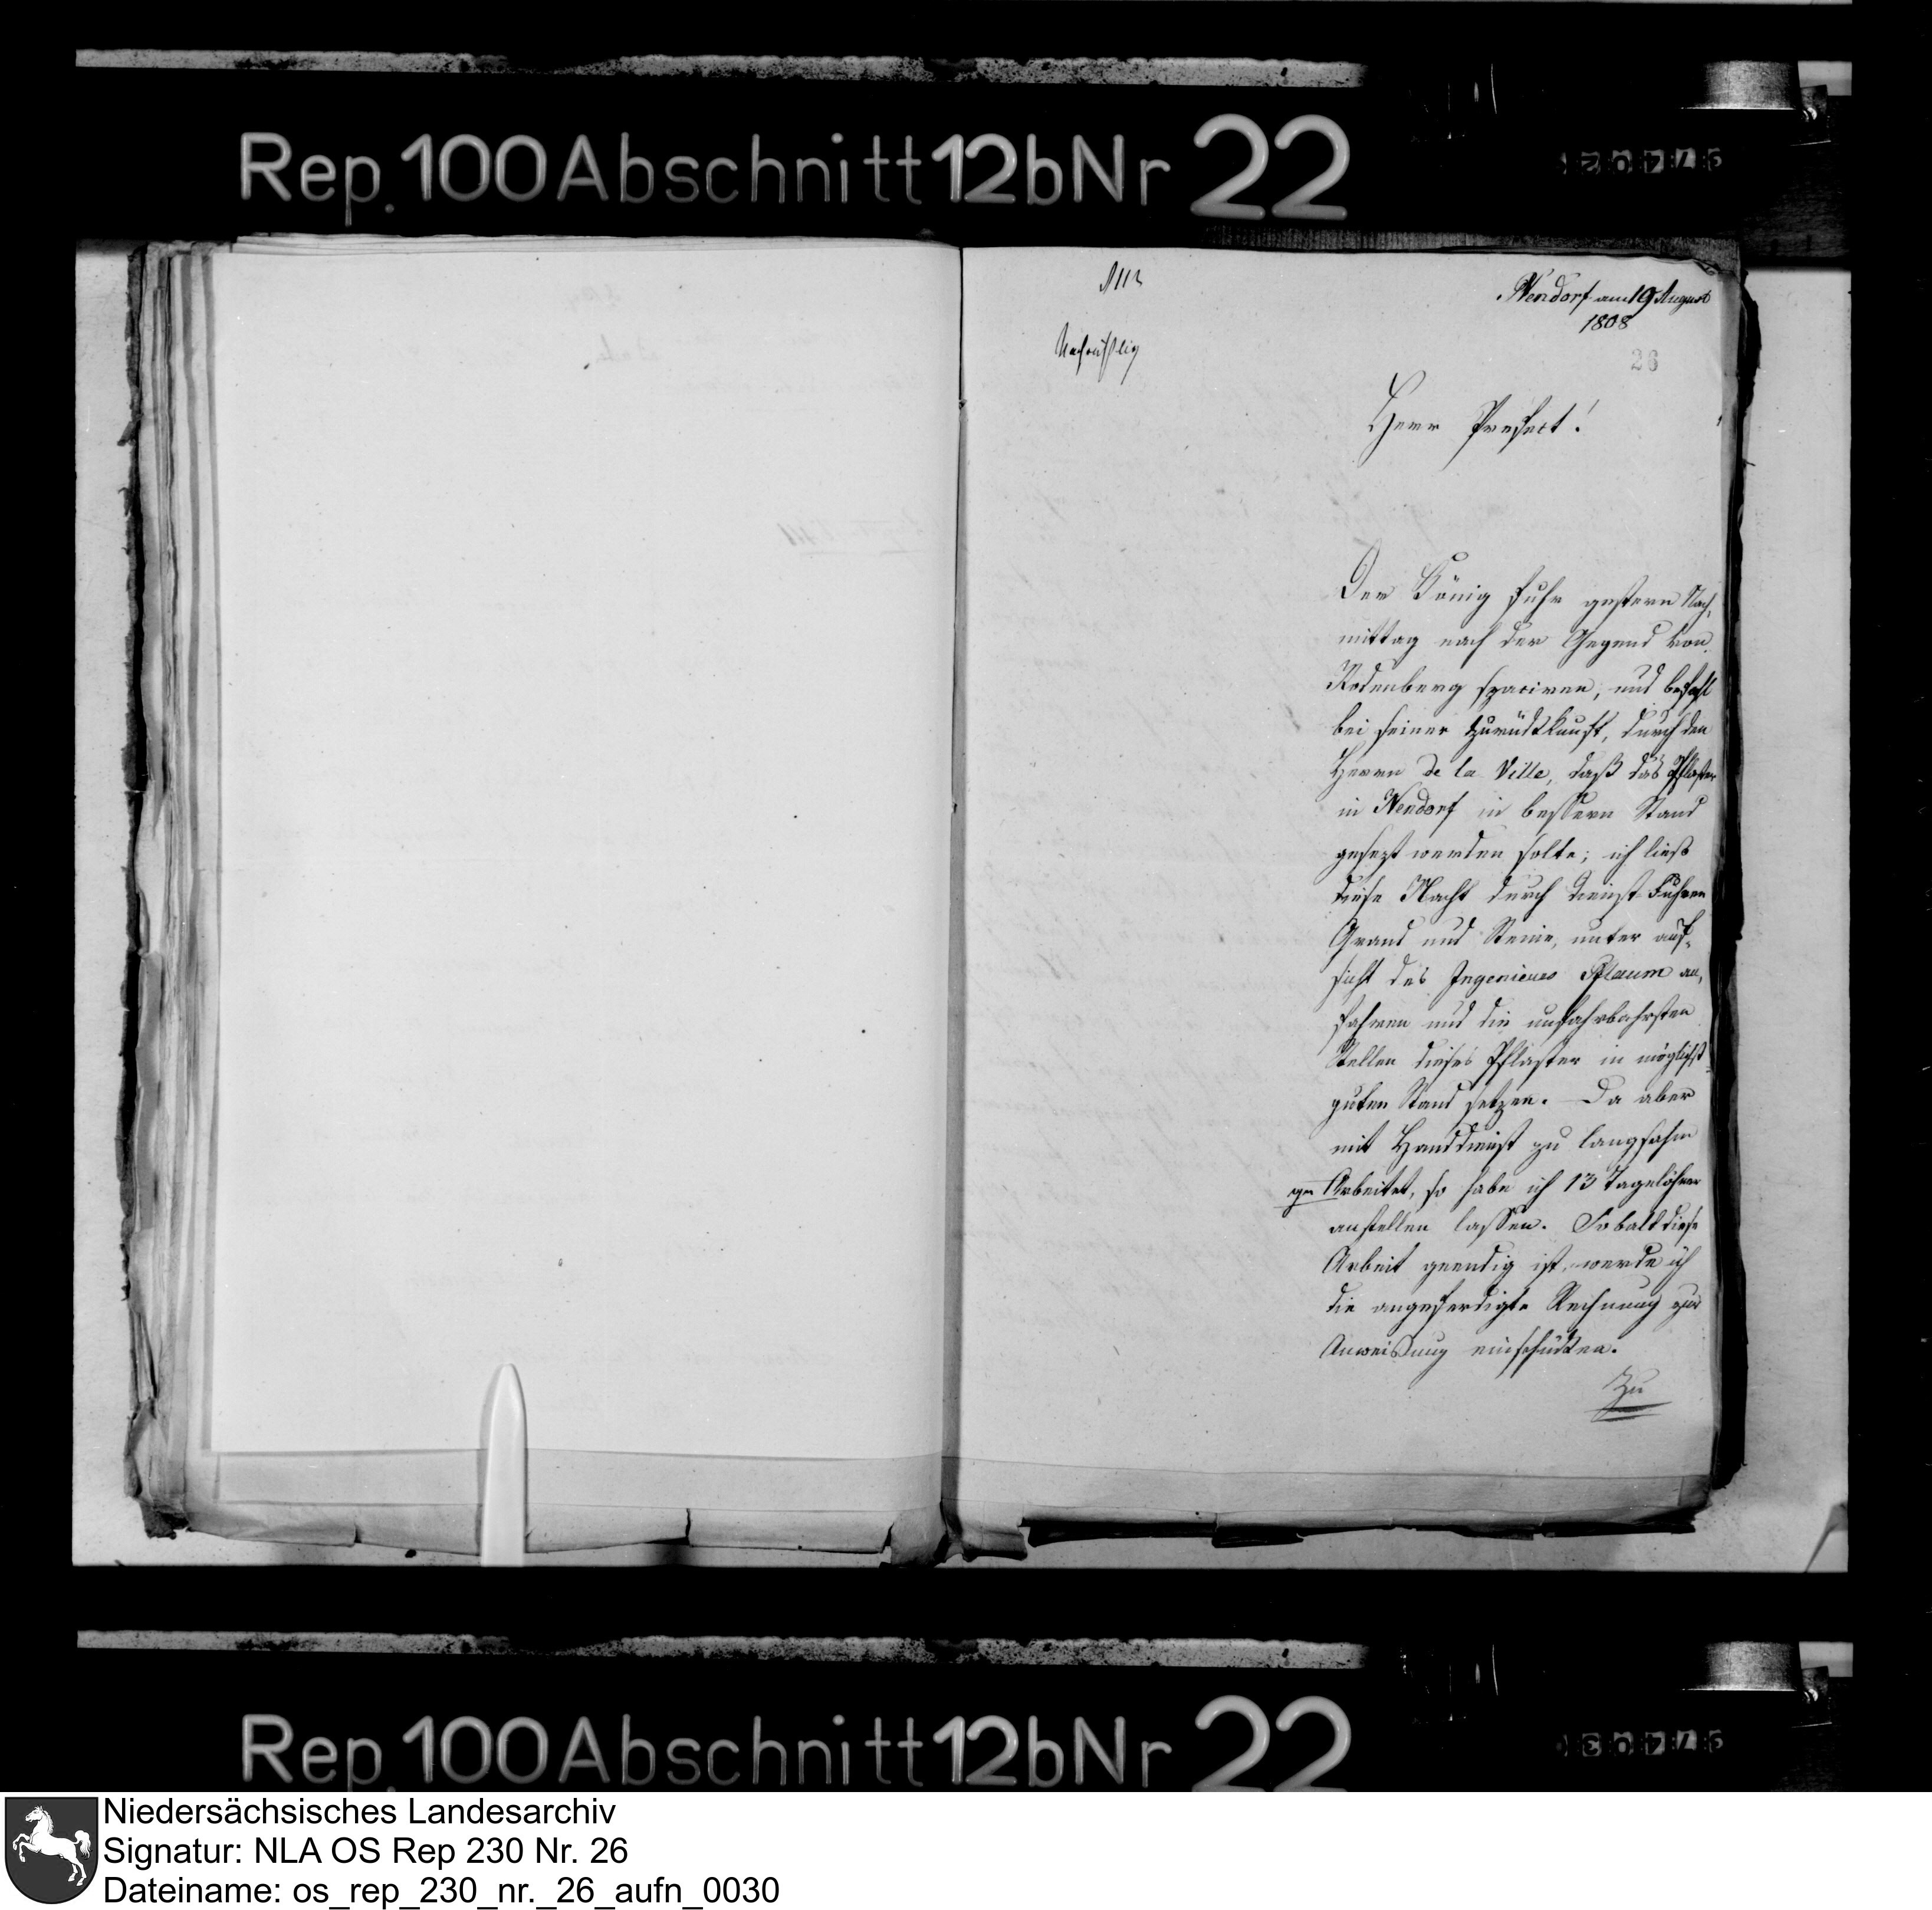 Rep. 100 Abschnitt 12b Nr 22
Nendorf am 19 August
1808
26
Herr Prefect!
Der König fuhr gestern Nach,
mittag nach der Gegend von
Rodenberg spaciren, und befahl
bei seiner Zurückkunft, durch den
Herrn de la Ville, daß das Pflaster
in Nendorf in bessern Stand
gesezt werden solte; ich ließ
diese Nacht durch dienst Fuhren
Grand und Steine, unter auf-
sicht des Ingenieurs Pflaum an,
fahren und die unfahrbahrsten
Stellen dieses Pflaster in möglichst
guten Stand setzen. Da aber
mit Handdienst zu langsahm
ge Arbeitet, so habe ich 13 Tagelöhner
anstellen lassen. So bald diese
Arbeit geendig ist, werde ich
die angeferdigte Rechnung zur
Anweißung einschicken.
Zu
Rep. 100 Abschnitt 12b Nr 22
Niedersächsisches Landesarchiv
Signatur: NLA OS Rep 230 Nr. 26
Dateiname: os_rep_230_nr._26_aufn_0030